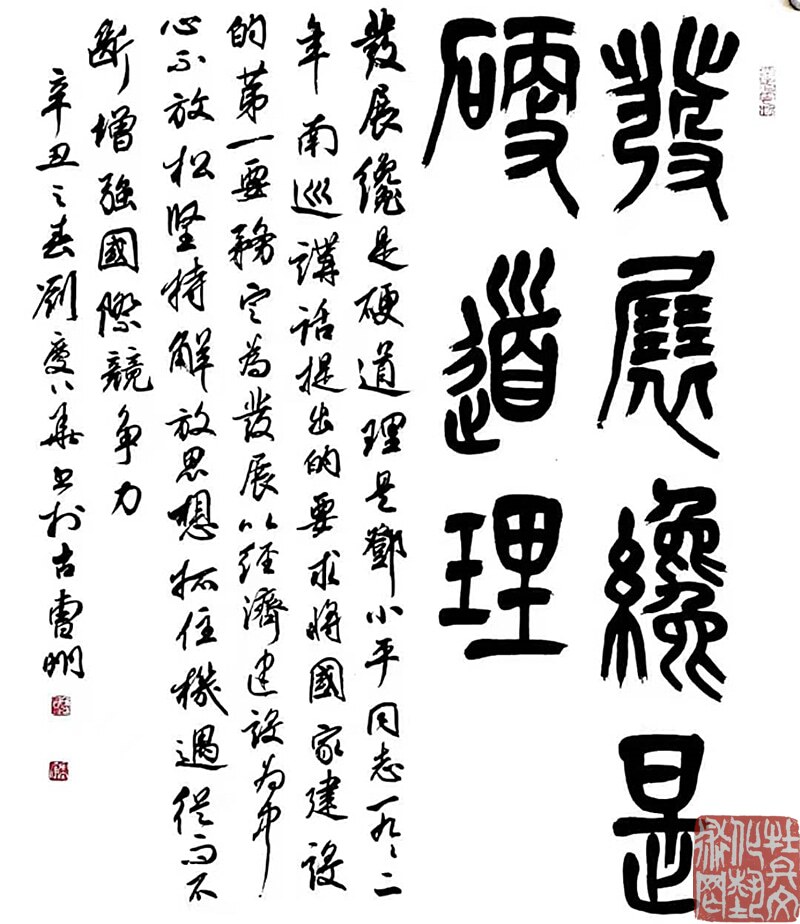 發展纔是
硬道理
發展纔是硬道理是鄧小平同志一九々二
年南巡講話提出的要求將國家建設
的第一要務定為發展以經濟建設為中
心不放松坚持解放思想抓住機遇從而不
斷增強國際競争力
辛丑之春劉慶書於古曹州
牡丹文
化藝
術网